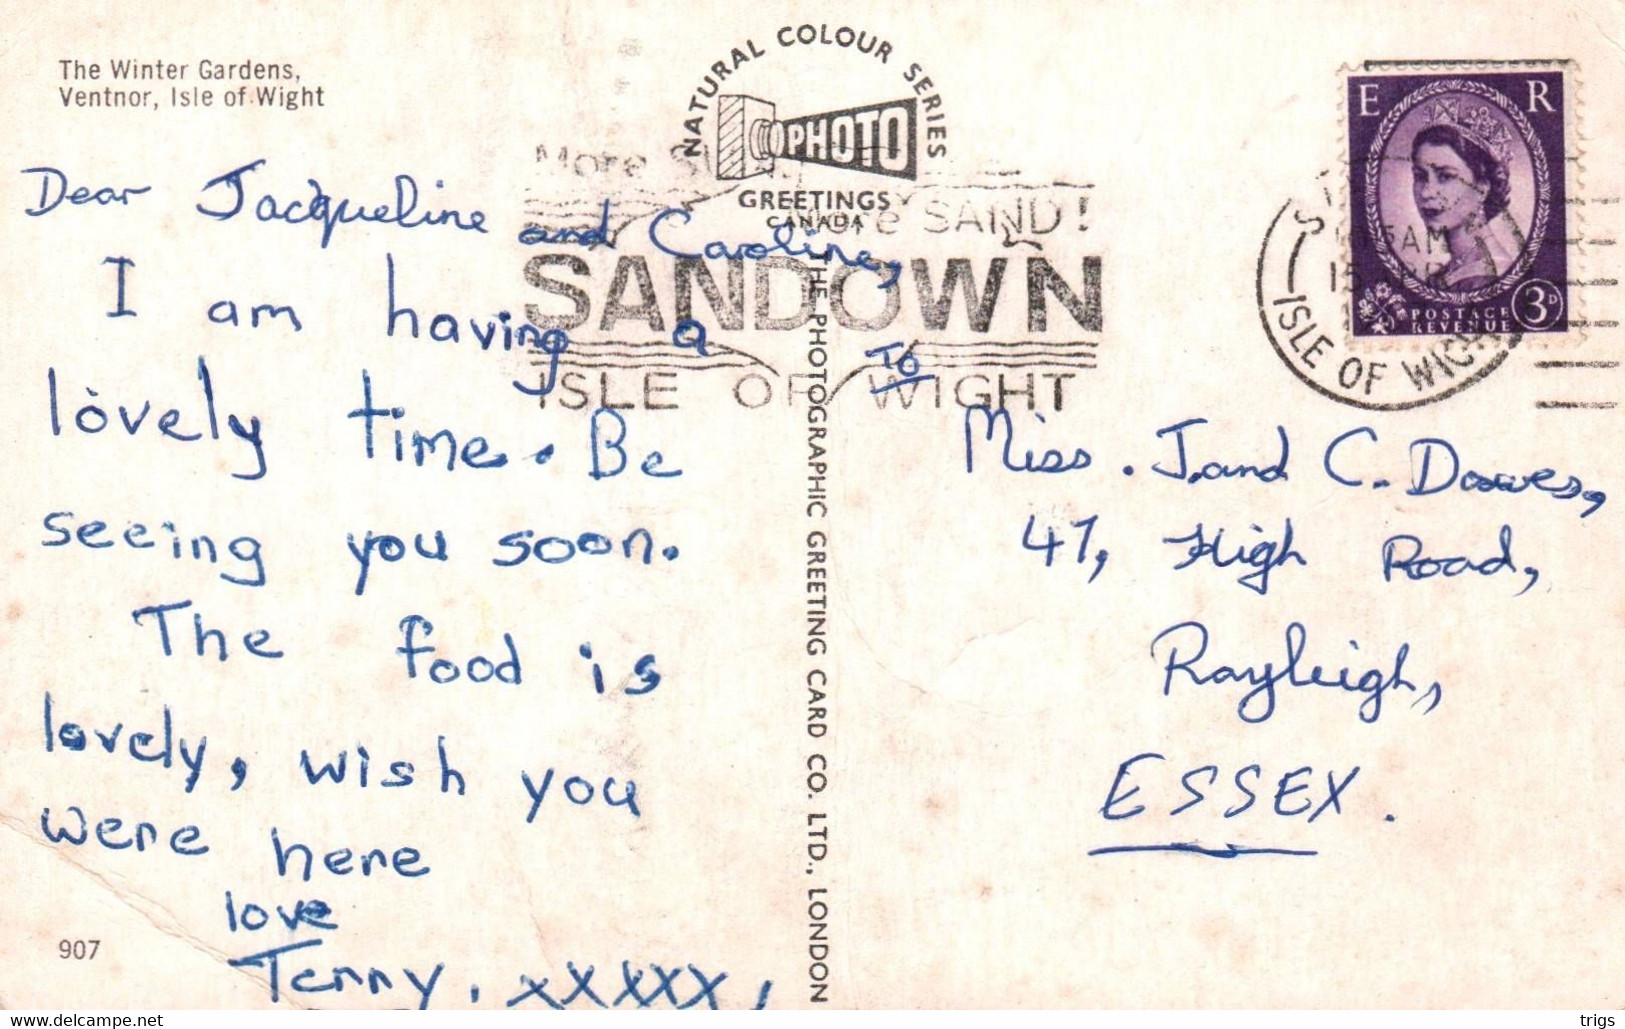 The Winter Gardens,
Ventnor, Isle of Wight
NATURAL COLOUR SERIES
PHOTO
GREETINGS
CANADA
More
SAND!
SANDOWN
ISLE OF WIGHT
E R
AM
15
ISLE OF WIGHT
POSTAGE
REVENUE
3D
Dear Jacqueline and Caroline,
I am having a
lovely time. Be
seeing you soon.
The food is
lovely, wish you
were here
love
xxxxxx
907
THE PHOTOGRAPHIC GREETING CARD CO. LTD., LONDON
To
Miss. J. and C. Dawes,
47, High Road,
Rayleigh,
ESSEX.
www.delcampe.net
trigs